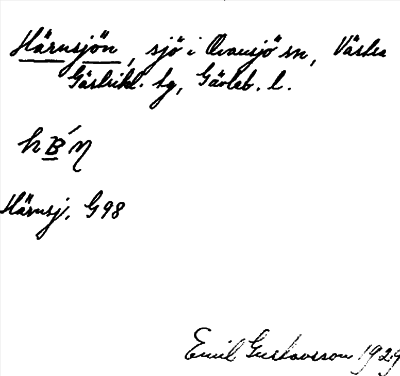 Härnsjön, sjö i Ovansjö sn, Västra
Gästrikl. tg, Gävleb. l.
Härnsj. G98
Emil Gustavsson 1929